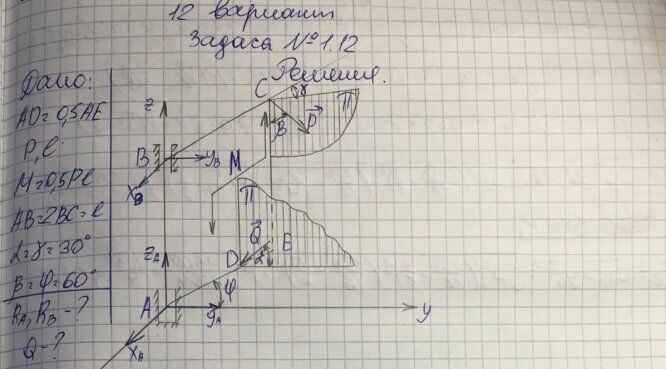 12 вариант
Задача №1.12
Дано:
Решение.
AD=0,5AE
P, l
M=0,5Pl
AB=2BC=l
α=γ=30°
β=φ=60°
R_A, R_B - ?
Q - ?
C
γ
z
β
P
П
B
y_B
M
x_B
П
z_A
Q
E
D
α
φ
A
y_A
y
x_A